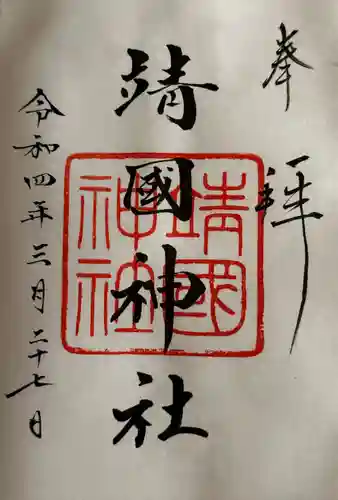 奉拝
靖國神社
靖國神社
令和四年三月二十七日